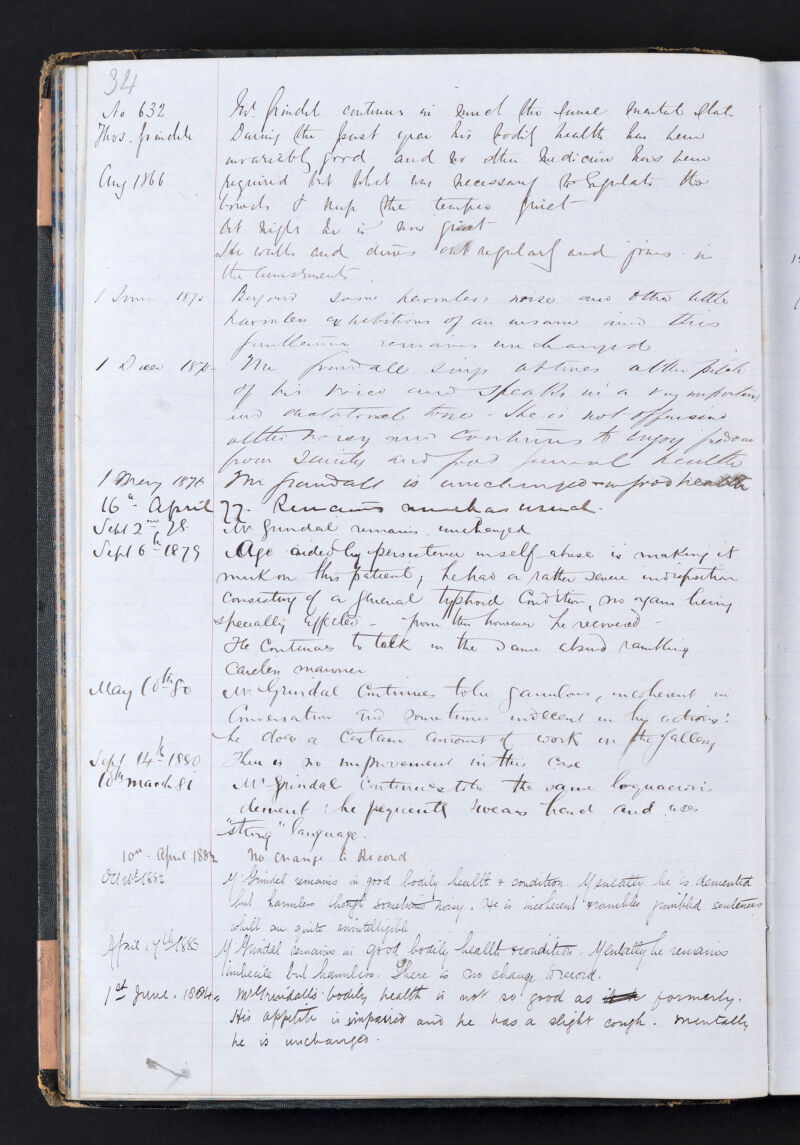 34
No 632 Mr Grindal continues in much the same mental state
Thos. Grindal During the past year his bodily health has been
invariably good and no other medicine has been
Aug 1866 required but what was necessary to regulate the
bowels & keep the temper quiet
At night he is now quiet
He walks and drives out regularly and joins in
the amusements
1 June 187 Beyond some harmless noise and other little
harmless exhibitions of an insane mind this
gentleman remains unchanged
1 187 Mr Grindall sings at times at the pitch
of his voice and speaks in a very important
and dictatorial tone. He is not offensive
altho noisy and continues to enjoy freedom
from and good general health
1 May 1876 Mr Grindall is unchanged in good health
16th April 77. Remains much as usual.
Sept 2nd 78 Mr Grindal remains unchanged
Sept 6th 1879 Age aided by persistence in self abuse is making its
mark on this patient, he had a rather severe indisposition
consisting of a general typhoid condition, no organ being
specially affected – from this however he recovered –
He continues to talk in the same absurd rambling
careless manner
May 10th 80 Mr Grindal continues to be garrulous, incoherent in
Conversation and sometimes indecent in his actions:
he does a certain amount of work in the gallery
Sept 14th 1880 There is no improvement in this case
10th March 81 Mr Grindal continues to be the same loquacious
dement: he frequently swears hard and uses
"strong" language.
10th April 1882 No change to Record
Oct 26th 1882 Mr Grindal remains in good bodily health & condition. Mentally he is demented
but harmless though sometimes noisy. He is incoherent & rambles jumbled sentences
which are quite unintelligible
April 19th 1883 Mr Grindal remains in good bodily health & condition. Mentally he remains
imbecile but harmless. There is no change to record.
1st June. 1884. Mr Grindall's bodily health is not so good as formerly.
His appetite is impaired and he has a slight cough. Mentally
he is unchanged.